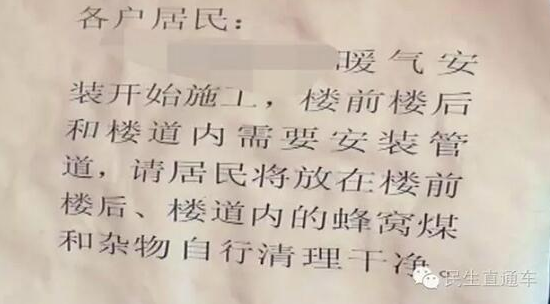 各户居民：
暖气安
装开始施工，楼前楼后
和楼道内需要安装管
道，请居民将放在楼前
楼后、楼道内的蜂窝煤
和杂物自行清理干净。
民生直通车